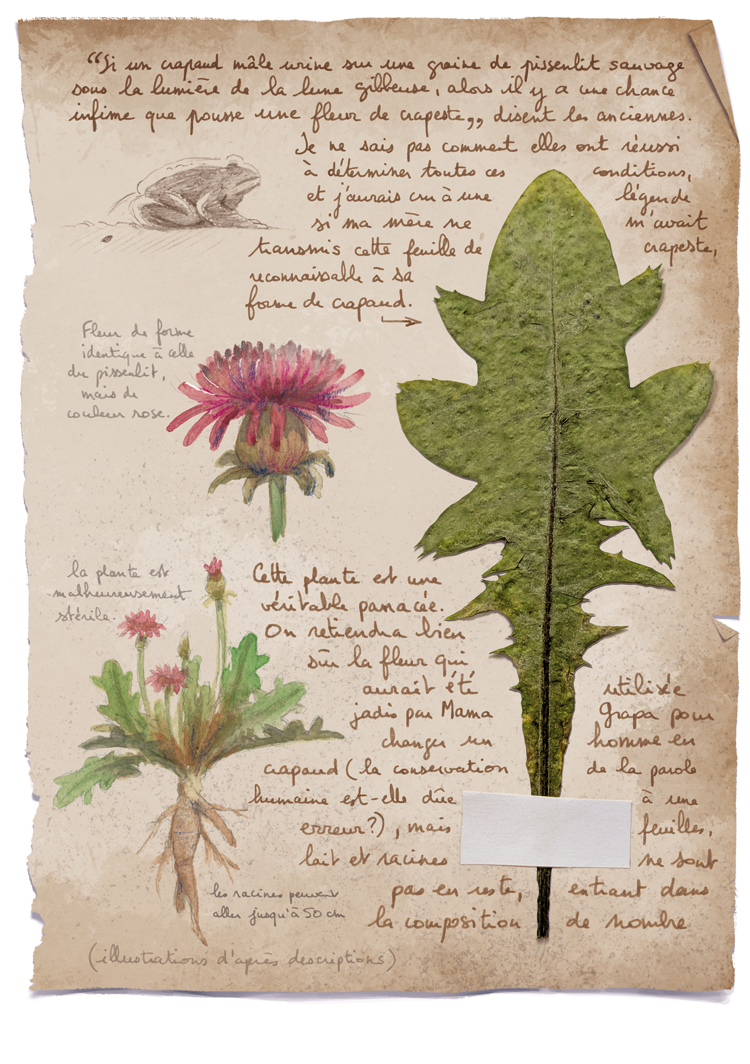 “Si un crapaud mâle urine sur une graine de pissenlit sauvage
sous la lumière de la lune gibbeuse, alors il y a une chance
infime que pousse une fleur de crapeste„ disent les anciennes.
Je ne sais pas comment elles ont réussi
à déterminer toutes ces conditions,
et j'aurais cru à une légende
si ma mère ne m'avait
transmis cette feuille de crapeste,
reconnaissable à sa
forme de crapaud.
Fleur de forme
identique à celle
du pissenlit,
mais de
couleur rose.
la plante est
malheureusement
stérile.
Cette plante est une
véritable panacée.
On retiendra bien
sûr la fleur qui
aurait été utilisée
jadis par Mama Grapa pour
changer un homme en
crapaud (la conservation de la parole
humaine est-elle dûe à une
erreur?), mais feuilles,
lait et racines ne sont
pas en reste, entrant dans
la composition de nombre
les racines peuvent
aller jusqu'à 50 cm
(illustrations d'après descriptions)